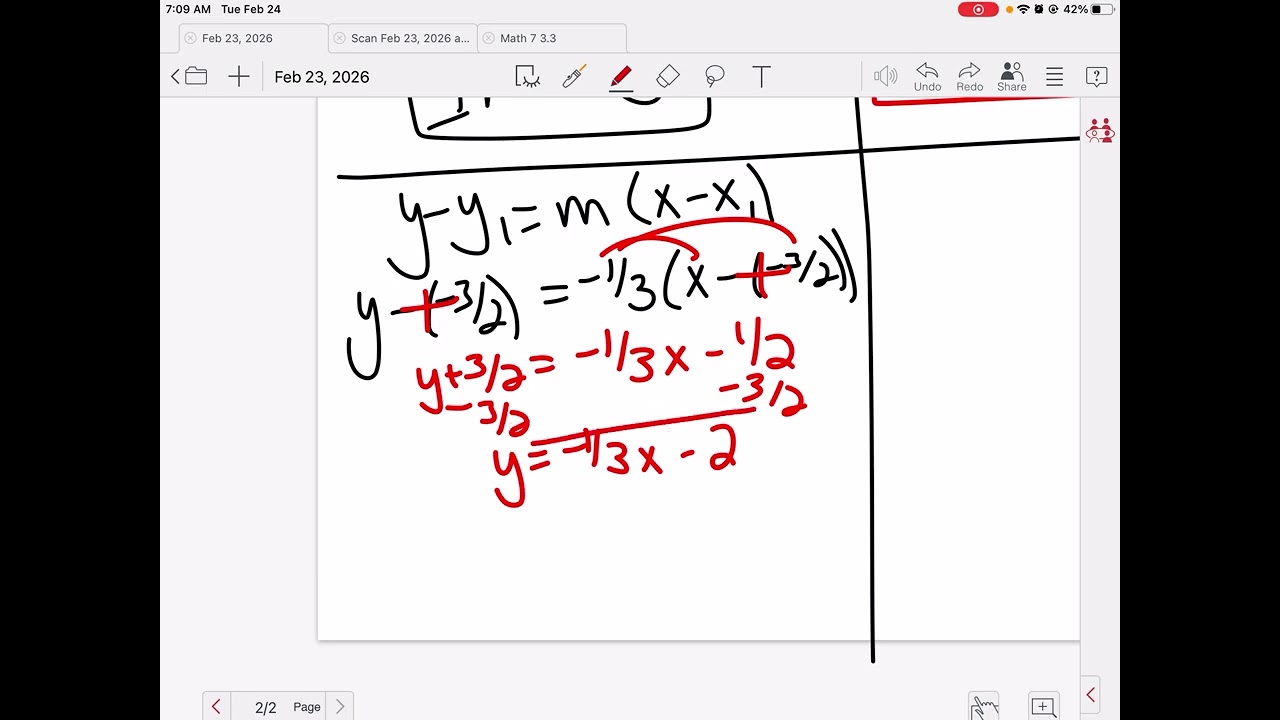 7:09 AM Tue Feb 24
42%
Feb 23, 2026
Scan Feb 23, 2026 a...
Math 7 3.3
Feb 23, 2026
T
Undo
Redo
Share
y-y₁=m(x-x₁)
y-(-3/2) = -1/3(x-(-3/2))
y+3/2= -1/3x-1/2
-3/2 -3/2
y=-1/3x-2
2/2 Page